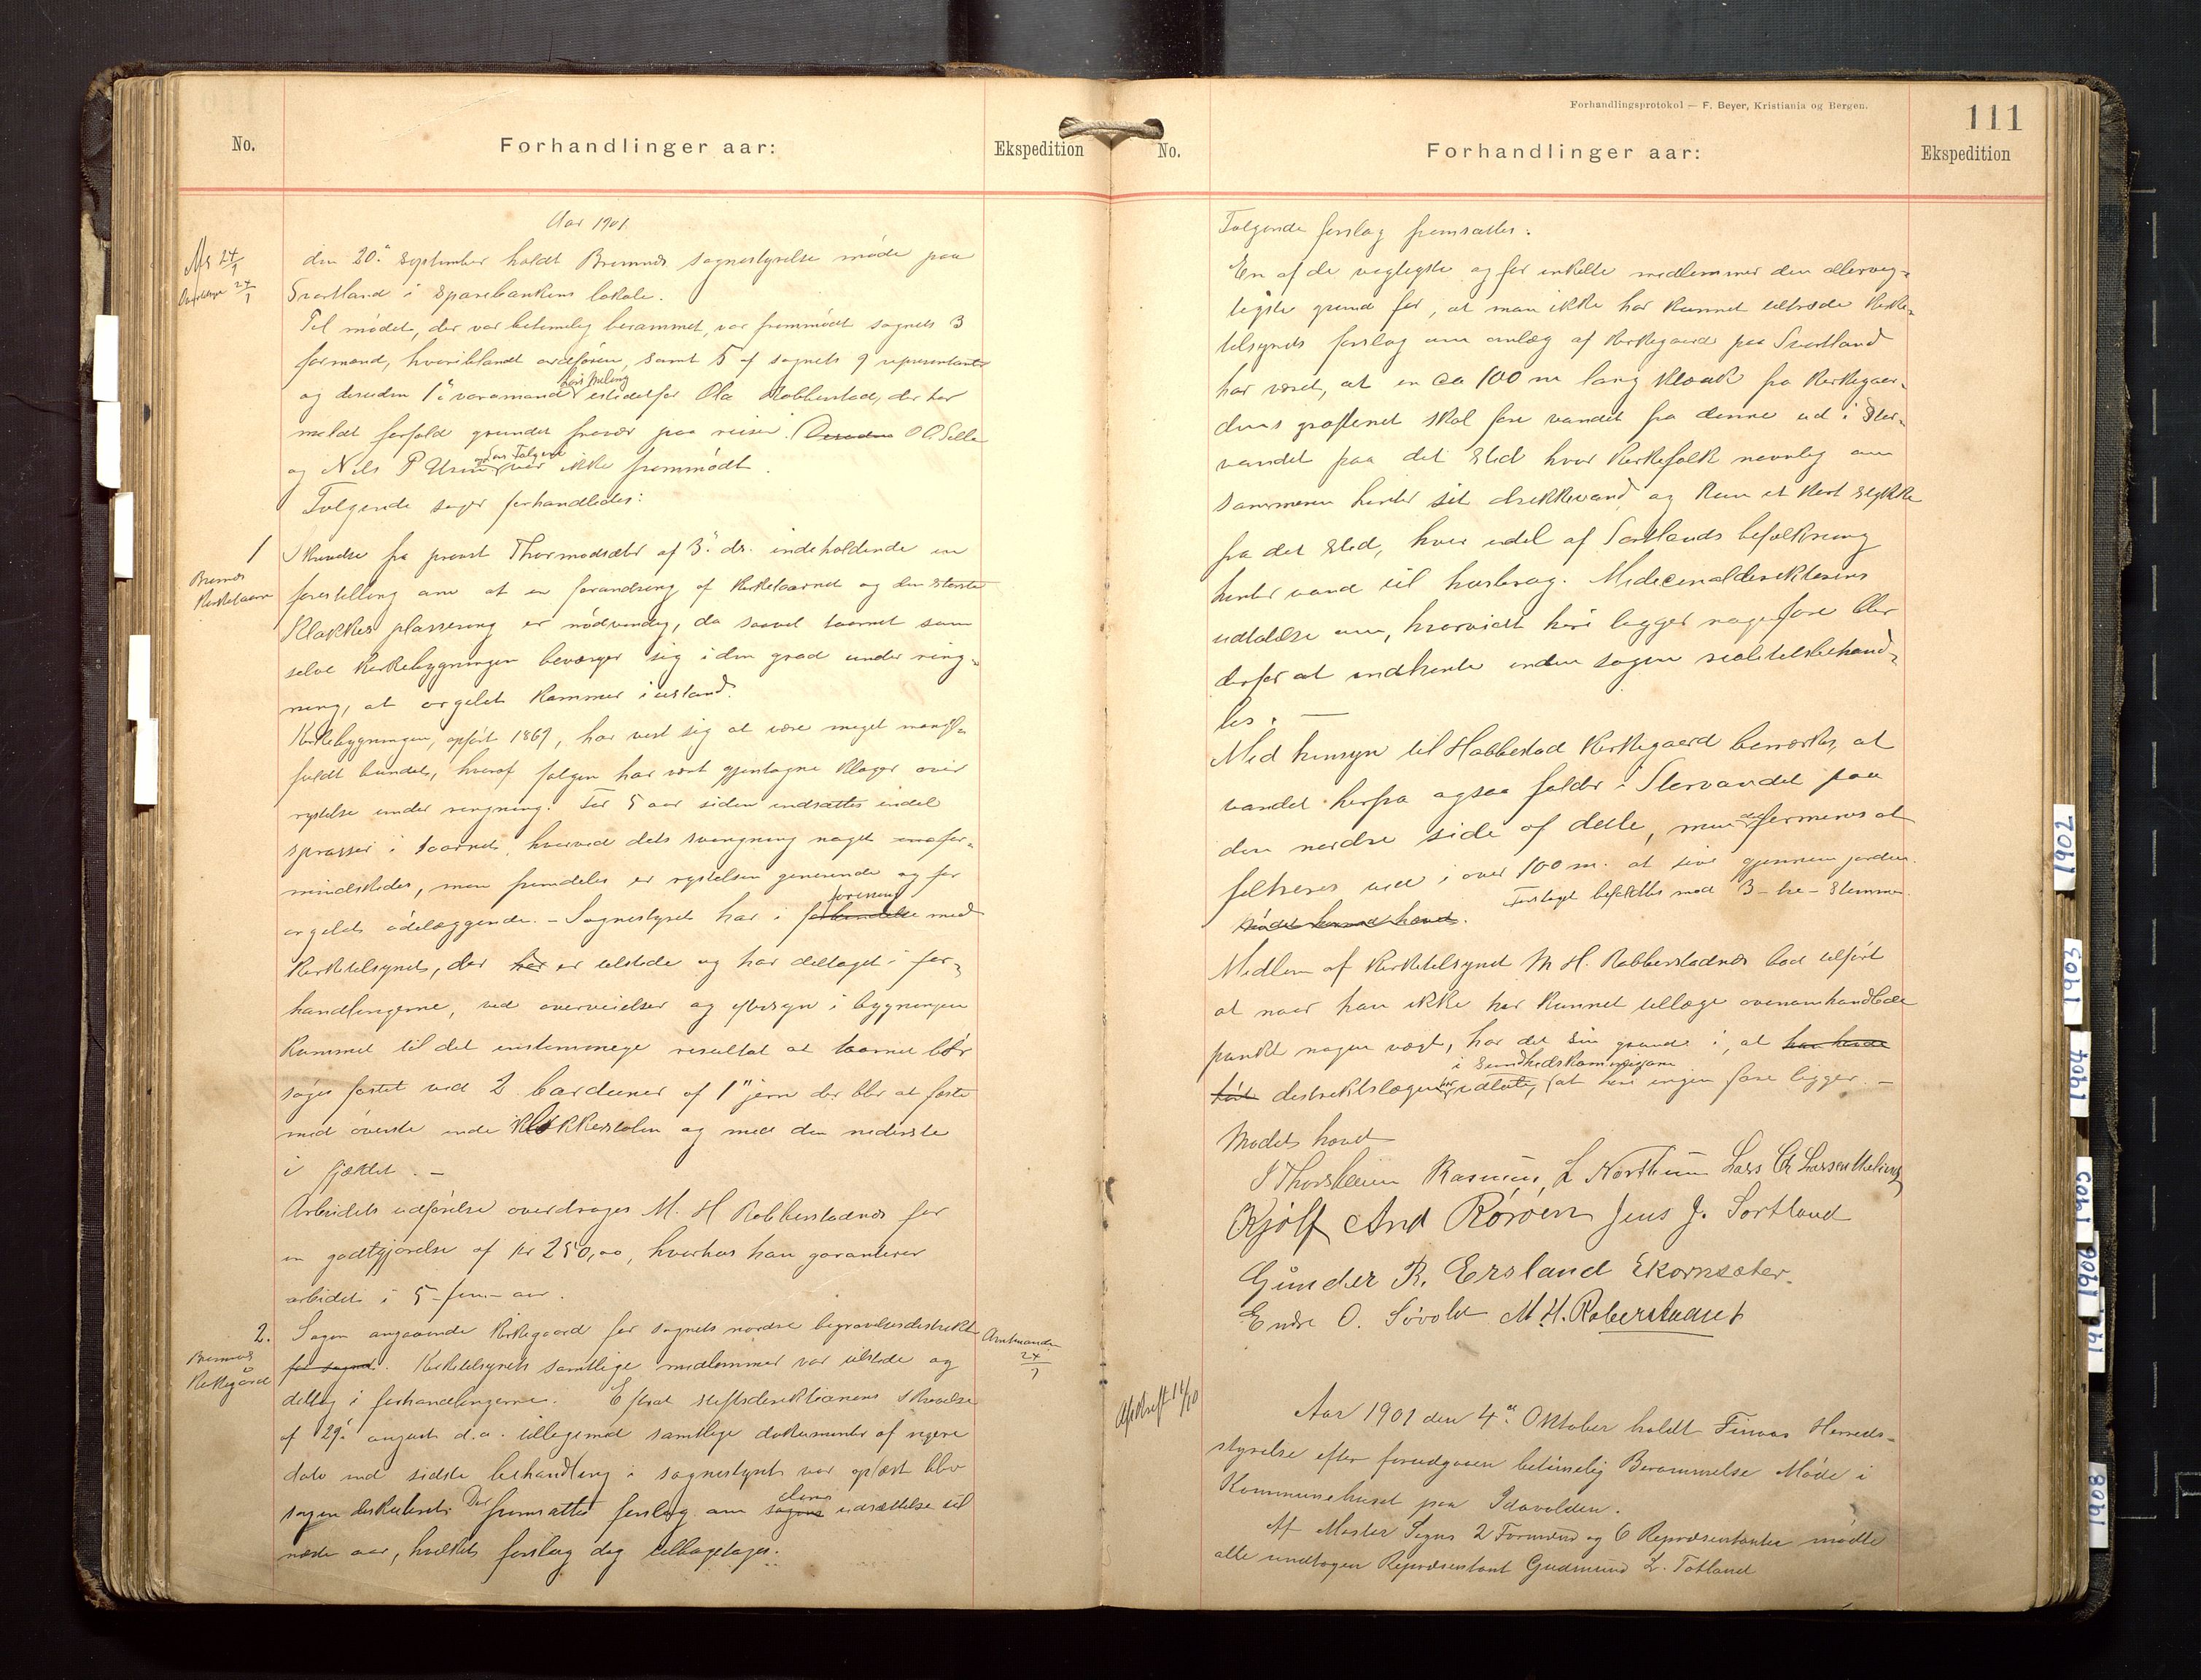 No.
Forhandlinger aar:
Ekspedition
Aar 1901
den 20.de september holdt Bremnes sognestyrelse møde paa
Svortland i sparebankens lokale.
Til mødet, der var betimelig berammet, var fremmødt sognets 3
formænd, hvoriblandt ordføren, samt 5 af sognets 9 repræsentanter
og desuden 1.ste varamand Lars Meling istedetfor Ola Robberstad, der har
meldt forfald grundet fravær paa reise. Desuden O O Selle
og Nils P Urum og Lars Folgerø var ikke fremmødt.
Følgende sager forhandledes:
1
Bremnes
Kirketaarn
Skrivelse fra provst Thormodsæter af 3. ds. indeholdende en
forestilling om at en forandring af kirketaarnet og den største
klokkes plassering er nødvendig, da saavel taarnet som
selve kirkebygningen bevæger sig i den grad under ring-
ning, at orgelet kommer i ustand.
Kirkebygningen, opført 1869, har vist sig at være meget mangel-
fuldt bundet, hvoraf følgen har vært gjentagne klager over
rystelse under ringning. For 5 aar siden indsattes endel
sprosser i taarnet, hvorved dets svingning noget for-
mindskedes, men fremdeles er rystelsen generende og for
orgelet ødelæggende. – Sognestyret har i forbindelse forening med
Kirketilsynet, der har er tilstede og har deltaget i for-
handlingerne, ved overveielser og eftersyn i bygningen
kommet til det enstemmige resultat at taarnet bør
søges fæstet ved 2 barduner af 1" jern der blir at fæste
med øverste ende i klokkestolen og med den nederste
i fjeldet. –
Arbeidets udførelse overdrages M. H Robberstadnes for
en godtgjørelse af Kr 250,00, hvorhos han garanterer
arbeidet i 5 – fem – aar.
2.
Bremnes
Kirkegård
Sagen angaaende kirkegaard for sognets nordre begravelsesdistrikt
for sognet. Kirketilsynets samtlige medlemmer var tilstede og
deltog i forhandlingerne. Efterat stiftsdirektionens skrivelse
af 29. august d.a. tilligemed samtlige dokumenter af nyere
dato end sidste behandling i sognestyret var oplæst blev
sagen diskuteret. Der fremsattes forslag om sagens dens udsættelse til
næste aar, hvilket forslag dog tilbagetoges.
Amtmanden
Forhandlingsprotokol — F. Beyer, Kristiania og Bergen.
111
No.
Forhandlinger aar:
Ekspedition
Følgende forslag fremsattes:
En af de vegtigste og for enkelte medlemmer den allerveg-
tigste grund for, at man ikke har kunnet tiltræde kirke-
tilsynets forslag om anlæg af kirkegaard paa Svortland
har været, at en ca 100 m lang kloak fra kirkegaar-
dens grøftenet skal føre vandet fra denne ud i Stor-
vandet paa det sted hvor kirkefolk navnlig om
sommeren henter sit drikkevand, og kun et kort stykke
fra det sted, hvor endel af Sortlands befolkning
henter vand til husbrug. Medicinaldirektørens
udtalelse om, hvorvidt heri ligger nogen fare blir
derfor at indhente inden sagen realitetsbehand-
les. —
Med hensyn til Habbestad kirkegaard bemærkes, at
vandet herfra ogsaa falder i Storvandet paa
den nordre side af dette, men det formenes at
filtreres ved i over 100 m. at sive gjennem jorden.
Forslaget bifaldtes med 3 – tre – stemmer.
Mødet hermed hævet.
Medlem af kirketilsynet M H. Robberstadnes lod tilført
at naar han ikke har kunnet tillægge ovenomhandlede
punkt nogen vægt, har det sin grund i, at han havde
hørt distriktslægen i Sundhedskommisjonen har udtalt, at heri ingen fare ligger. –
Mødet hævet
J Thorsheim Rasmus L Nortun Lars Ch Larsen Meling
O Kjølf And Rörøen Jens J. Sortland
Gunder R. Ersland Ekornsæter.
Endre O. Søvold M. H. Roberstadnes
Afskrift 14/10
Aar 1901 den 4.de Oktober holdt Finaas Herreds-
styrelse efter forudgaaen betimelig Berammelse Møde i
Kommunehuset paa Idavolden.
Af Moster Sogns 2 Formænd og 6 Repræsentanter mødte
alle undtagen Repræsentant Gudmund L. Totland
1902
1903
1904
1905
1906
1908